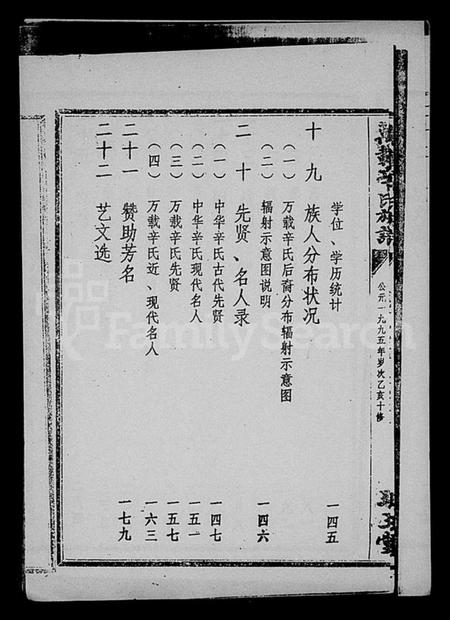 萬載辛氏族譜
公元一九九五年岁次乙亥十修
学位、学历统计 一四五
十九 族人分布状况
（一）万载辛氏后裔分布辐射示意图
（二）辐射示意图说明 一四六
二十 先贤、名人录
（一）中华辛氏古代先贤 一四七
（二）中华辛氏现代名人 一五一
（三）万载辛氏先贤 一五七
（四）万载辛氏近、现代名人 一六三
二十一 赞助芳名 一七九
二十二 艺文选
FamilySearch